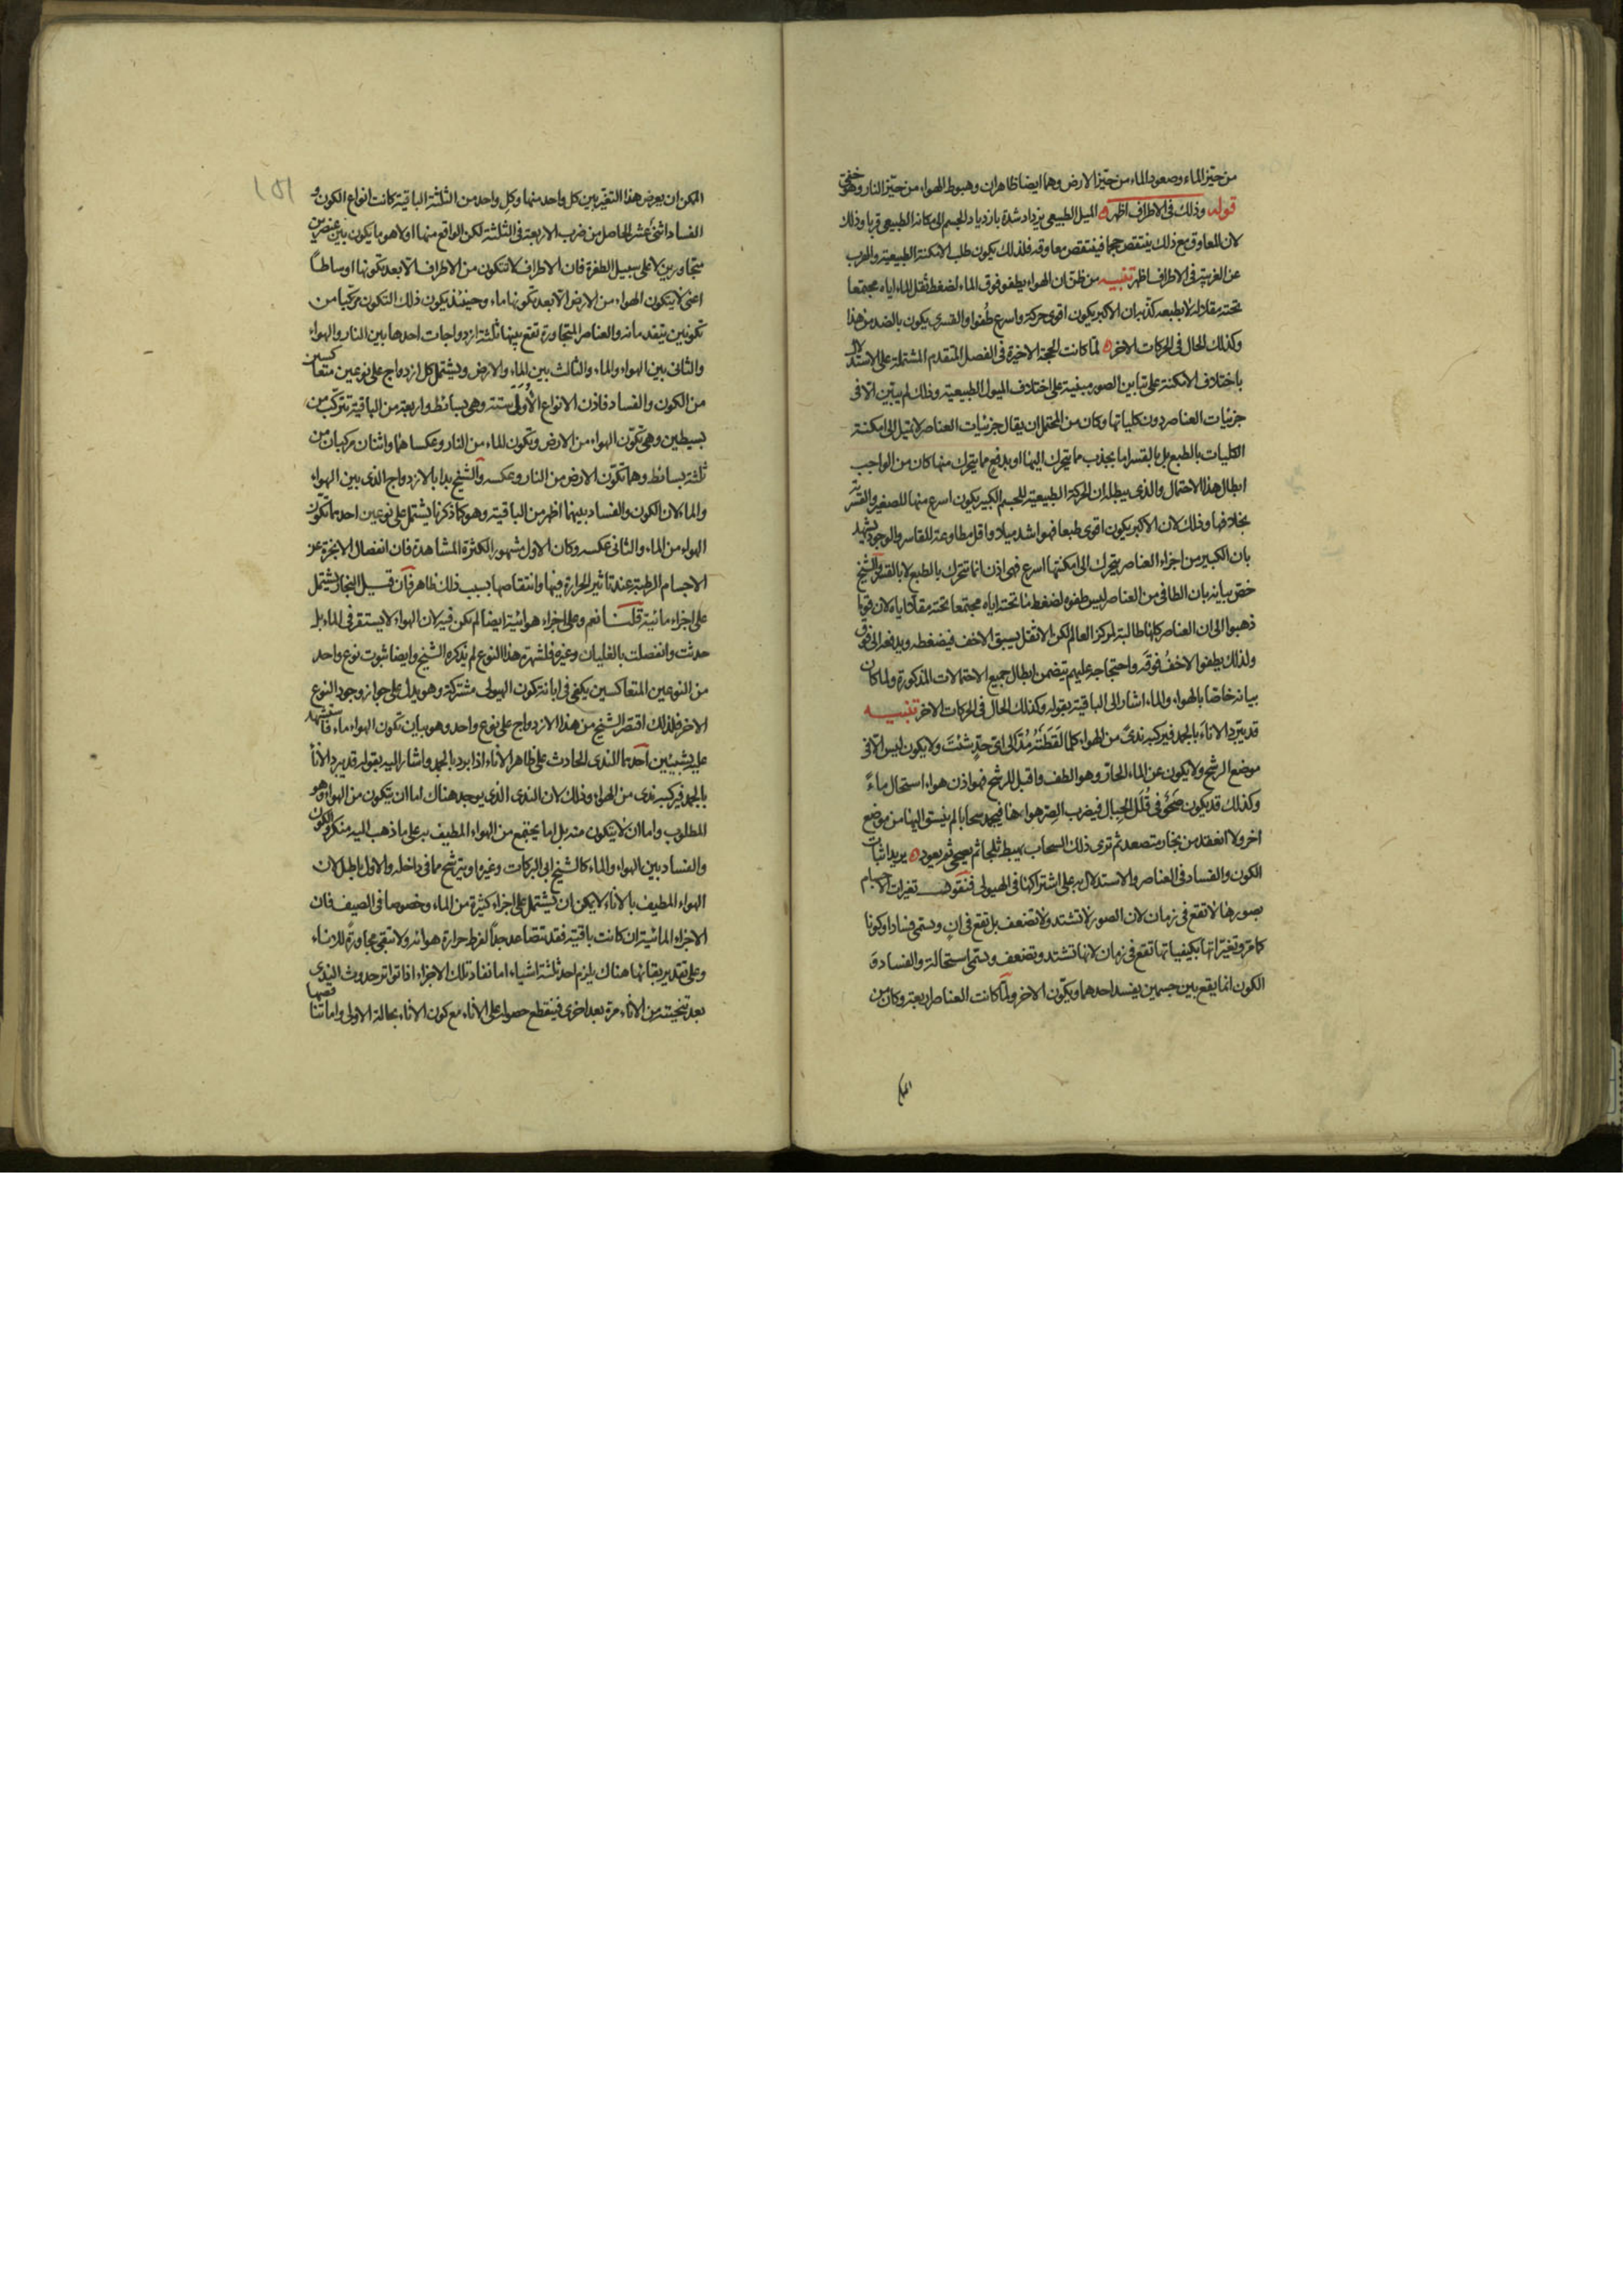 من حيز الماء وصعود الماء من حيز الارض وهما ايضا ظاهران وهبوط الهواء من حيز النار وهو خفي
قوله وذلك فى الاطراف اظهر الميل الطبيعى يزداد شدة بازدياد الجسم الى مكانه الطبيعى قربا وذلك
لان المعاوق مع ذلك ينتقص حجما فينتقص معاوقه فلذلك يكون طلب الامكنة الطبيعية والهرب
عن الغريبة فى الاطراف اظهر تنبيه من ظن ان الهواء يطفو فوق الماء لضغط ثقل الماء اياه مجتمعا
تحته مقلا له لا بطبعه كذبه ان الاكبر يكون اقوى حركة واسرع طفوا والقسرى يكون بالضد من هذا
وكذلك الحال فى الحركات الاخر لما كانت الحجة الاخيرة فى الفصل المتقدم المشتملة على الاستدلال
باختلاف الامكنة على تباين الصور مبنية على اختلاف الميول الطبيعية وذلك لم يتبين الا فى
جزئيات العناصر دون كلياتها وكان من المحتمل ان يقال جزئيات العناصر لا تميل الى امكنة
الكليات بالطبع بل بالقسر اما بجذب مما يتحرك اليها او بدفع مما يتحرك منها كان من الواجب
ابطال هذا الاحتمال والذى يبطله ان الحركة الطبيعية للجسم الكبير يكون اسرع منها للصغير والقسرية
بخلافها وذلك لان الاكبر يكون اقوى طبعا فهو اشد ميلا واقل مطاوعة للقاسر والوجود يشهد
بان الكبير من اجزاء العناصر يتحرك الى امكنتها اسرع فهى اذن انما تتحرك بالطبع لا بالقسر والشيخ
خص بيانه بان الطافى من العناصر ليس طفوه لضغط ما تحته اياه مجتمعا تحته مقلا اياه لان قوما
ذهبوا الى ان العناصر كلها طالبة لمركز العالم لكن الاثقل يسبق الاخف فيضغطه ويدفعه الى فوق
ولذلك يطفوا الاخف فوقه واحتجاجه عليهم يتضمن ابطال جميع الاحتمالات المذكورة ولما كان
بيانه خاصا بالهواء والماء اشار الى الباقية بقوله وكذلك الحال فى الحركات الاخر تنبيه
قد يبرد الاناء بالجمد فيركبه ندى من الهواء كلما لقطته مد الى اى حد شئت ولا يكون ليس الا فى
موضع الرشح ولا يكون عن الماء الحار وهو الطف واقبل للرشح فهو اذن هواء استحال ماء
وكذلك قد يكون صحو فى قلل الجبال فيضرب الصر هواءها فيجمد سحابا لم ينسق اليها من موضع
اخر ولا انعقد من بخار متصعد ثم ترى ذلك السحاب يهبط ثلجا ثم يصحى ثم يعود يريد اثبات
الكون والفساد فى العناصر والاستدلال به على اشتراكها فى الهيولى فنقول تغيرات الاجسام
بصورها لا تقع فى زمان لان الصور لا تشتد ولا تضعف بل تقع فى ان وتسمى فسادا وكونا
كما مر وتغيراتها بكيفياتها تقع فى زمان لانها تشتد وتضعف وتسمى استحالة والفساد و
الكون انما يقع بين جسمين يفسد احدهما ويتكون الاخر ولما كانت العناصر اربعة وكان من
المكن
الممكن ان يعرض هذا التغير بين كل واحد منها وكل واحد من الثلثة الباقية كانت انواع الكون و
الفساد اثنى عشر الحاصل من ضرب الاربعة فى الثلثة لكن الواقع منها اولا هو ما يكون بين عنصرين
متجاورين لا على سبيل الطفرة فان الاطراف لا تتكون من الاطراف الا بعد تكونها اوساطا
اعنى لا يتكون الهواء من الارض الا بعد تكونها ماء وحينئذ يكون ذلك التكون مركبا من
تكونين يتقدمانه والعناصر المتجاورة تقع بينها ثلثة ازدواجات احدها بين النار والهواء
والثانى بين الهواء والماء والثالث بين الماء والارض ويشتمل كل ازدواج على نوعين متعاكسين
من الكون والفساد فاذن الانواع الاولى ستة وهى بسائط واربعة من الباقية تتركب من
بسيطين وهى تكون الهواء من الارض وتكون الماء من النار وعكساهما واثنان مركبان من
ثلثة بسائط وهما تكون الارض من النار وعكسه والشيخ بدا بالازدواج الذى بين الهواء
والماء لان الكون والفساد بينهما اظهر من الباقية وهو كما ذكرنا يشتمل على نوعين احدهما تكون
الهواء من الماء والثانى عكسه وكان الاول مشهور الكثرة المشاهدة فان انفصال الابخرة عن
الاجسام الرطبة عند تاثير الحرارة فيها وانتقاصها بسبب ذلك ظاهر فان قيل البخار يشتمل
على اجزاء مائية قلنا نعم وعلى اجزاء هوائية ايضا لم تكن فيه لان الهواء لا يستقر فى الماء بل
حدثت وانفصلت بالغليان وغيره فلشهرة هذا النوع لم يذكره الشيخ وايضا ثبوت نوع واحد
من النوعين المتعاكسين يكفى فى ابانة كون الهيولى مشتركة وهو يدل على جواز وجود النوع
الاخر فلذلك اقتصر الشيخ من هذا الازدواج على نوع واحد وهو بيان تكون الهواء ماء فاستشهد
عليه بشيئين احدهما الندى الحادث على ظاهر الاناء اذا برد بالجمد واشار اليه بقوله قد يبرد الاناء
بالجمد فيركبه ندى من الهواء وذلك لان الندى الذى يوجد هناك اما ان يتكون من الهواء وهو
المطلوب واما ان لا يتكون منه بل اما يجتمع من الهواء المطيف به على ما ذهب اليه منكروا الكون
والفساد بين الهواء والماء كالشيخ ابى البركات وغيره او يترشح مما فى داخله والاول باطل لان
الهواء المطيف بالاناء لا يمكن ان يشتمل على اجزاء كثيرة من الماء وخصوصا فى الصيف فان
الاجزاء المائية ان كانت باقية فقد تتصاعد جدا لفرط حرارة هوائه ولا تبقى مجاورة للاناء
وعلى تقدير بقائها هناك يلزم احد ثلثة اشياء اما نفاد تلك الاجزاء اذا تواتر حدوث الندى
بعد تنحيته من الاناء مرة بعد اخرى فينقطع حصوله على الاناء مع كون الاناء بحاله الاولى واما تناقصها